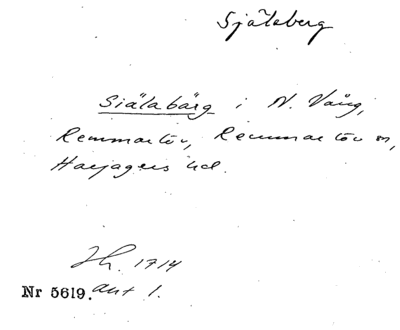 Själaberg
Siälabärg i N. Vång,
Remmarlöv, Remmarlöv sn,
Harjagers hd.
Jh. 1714
Nr 5619. akt 1.